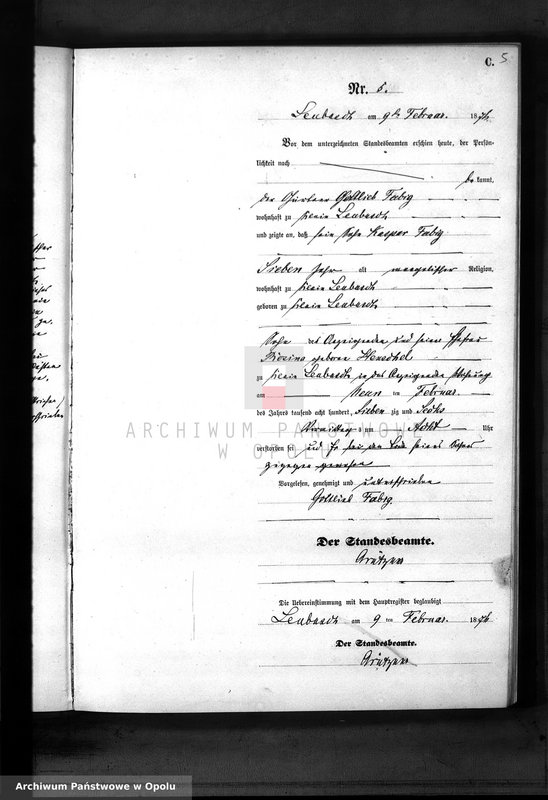 C. 5
Nr. 5.
Leubusch am 9ten Februar 1876
Vor dem unterzeichneten Standesbeamten erschien heute, der Persön-
lichkeit nach
be kannt,
der Gärtner Gottlieb Fabig
wohnhaft zu Klein Leubusch
und zeigte an, daß sein Sohn Kaspar Fabig
Sieben Jahr alt evangelischer Religion,
wohnhaft zu Klein Leubusch
geboren zu Klein Leubusch
Sohn des Anzeigenden und seiner Ehefrau
Rosina geborene Henschel
zu Klein Leubusch in des Anzeigenden Wohnung
am Neun ten Februar
des Jahres tausend acht hundert Sieben zig und Sechs
Vormittag s um Acht Uhr
verstorben sei und Er bei dem Tode seines Sohnes
zugegen gewesen
Vorgelesen, genehmigt und unterschrieben
Gottlieb Fabig
Der Standesbeamte.
Die Uebereinstimmung mit dem Hauptregister beglaubigt
Leubusch am 9 ten Februar 1876
Der Standesbeamte.
ARCHIWUM PAŃSTWOWE
W OPOLU
Archiwum Państwowe w Opolu